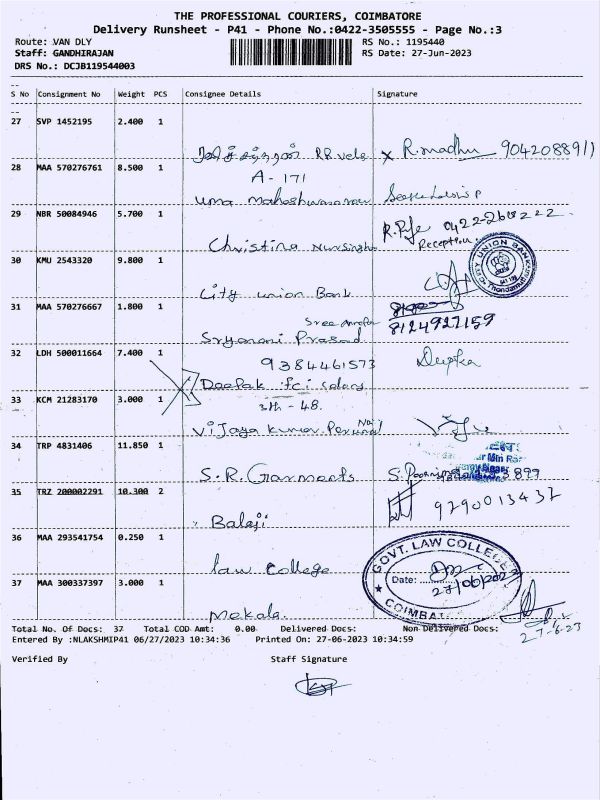 THE PROFESSIONAL COURIERS, COIMBATORE
Delivery Runsheet - P41 - Phone No.:0422-3505555 - Page No.:3
Route: VAN DLY RS No.: 1195440
Staff: GANDHIRAJAN RS Date: 27-Jun-2023
DRS No.: DCJB119544003
S No Consignment No Weight PCS Consignee Details Signature
27 SVP 1452195 2.400 1
R. madhu 9042088911
28 MAA 570276761 8.500 1
A - 171
uma maheshwaran
29 NBR 50084946 5.700 1
Reception
Christina Nursing
30 KMU 2543320 9.800 1
CITY UNION BANK
City union Bank
31 MAA 570276667 1.800 1
8124927159
Prasad
32 LDH 500011664 7.400 1
9384461573 Deepka
Deepak fci colony
33 KCM 21283170 3.000 1
3th - 48.
Vijaya kumar Perumal
34 TRP 4831406 11.850 1
S.R. Garments
35 TRZ 200002291 10.300 2
9790013437
Balaji
36 MAA 293541754 0.250 1
GOVT. LAW COLLEGE
law college
Date: 27/06/2023
37 MAA 300337397 3.000 1
COIMBAT
Mekala
Total No. Of Docs: 37 Total COD Amt: 0.00 Delivered Docs: Non Delivered Docs:
27-6-23
Entered By :NLAKSHMIP41 06/27/2023 10:34:36 Printed On: 27-06-2023 10:34:59
Verified By Staff Signature